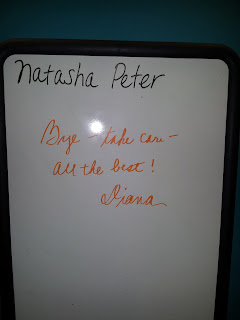 Natasha Peter
Bye - take care -
all the best!
Diana